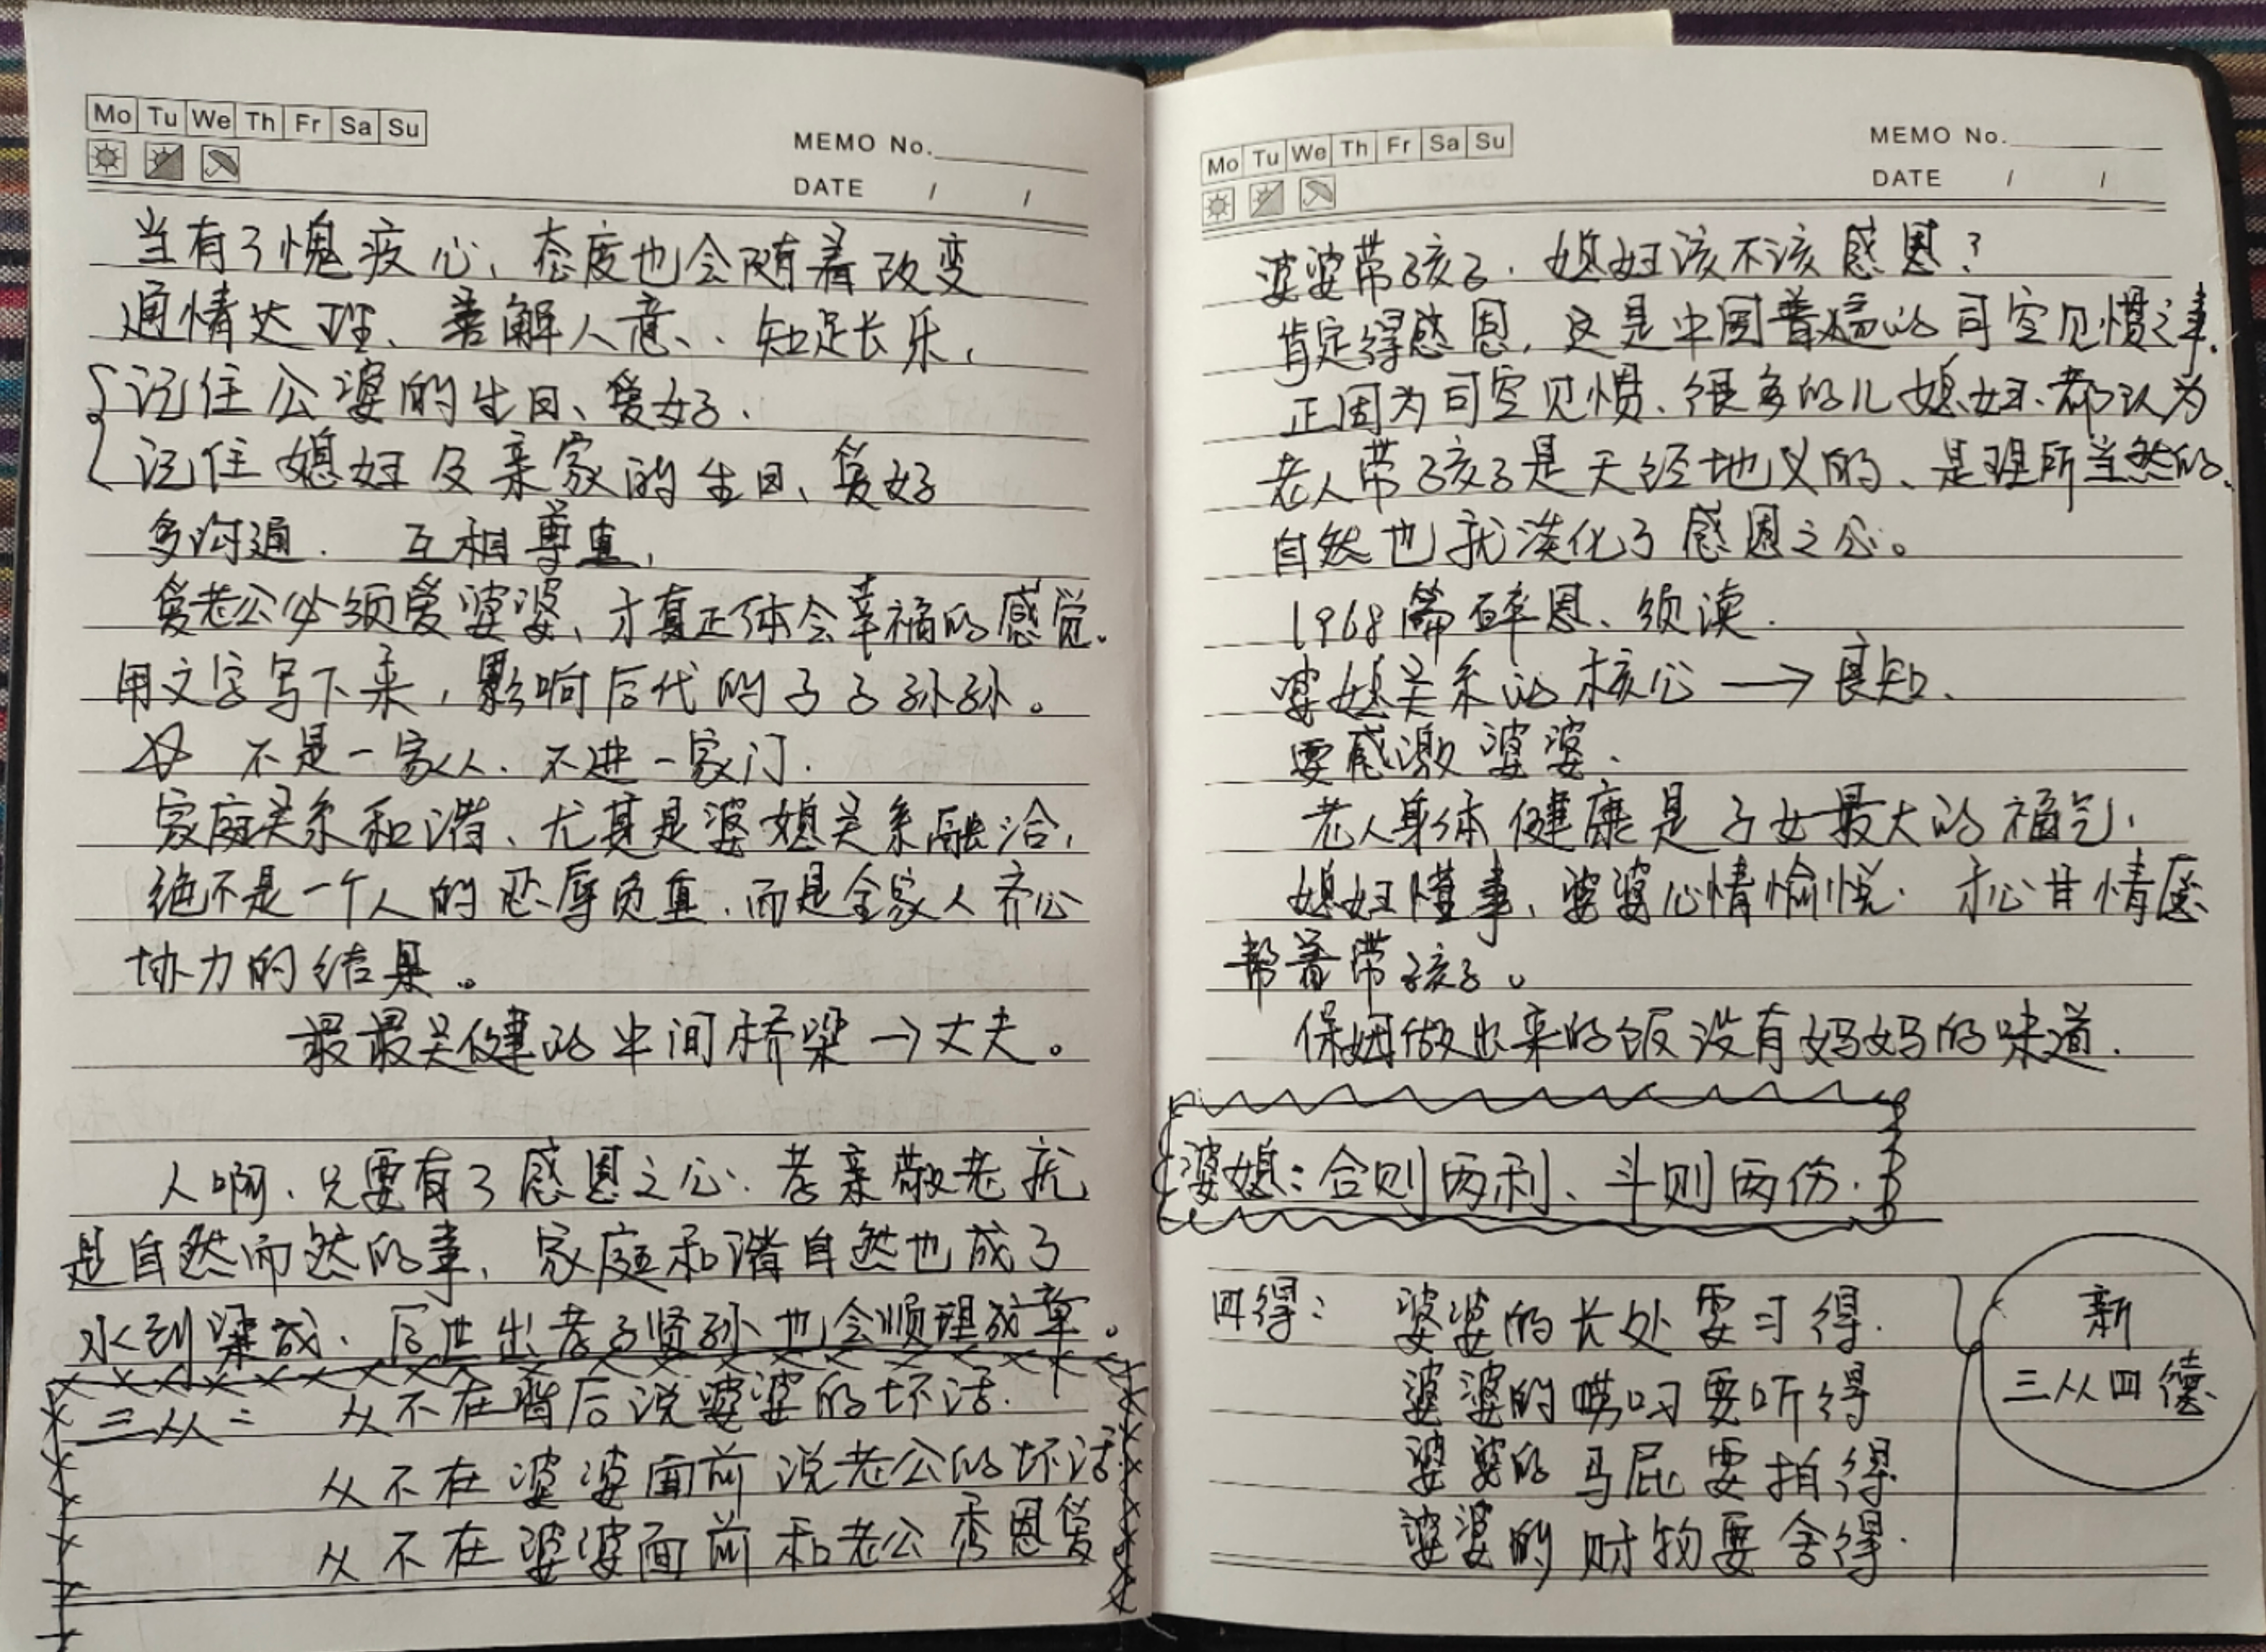 Mo Tu We Th Fr Sa Su
MEMO No.
DATE / /
当有了愧疚心、态度也会随着改变
通情达理、善解人意、、知足长乐,
记住公婆的生日、爱好.
记住媳妇及亲家的生日、爱好
多沟通. 互相尊重,
爱老公必须爱婆婆、才真正体会幸福的感觉。
用文字写下来,影响后代的子子孙孙。
☆ 不是一家人、不进一家门.
家庭关系和谐、尤其是婆媳关系融洽,
绝不是一个人的忍辱负重、而是全家人齐心
协力的结果。
最最关健的中间桥梁→丈夫。
人啊、只要有了感恩之心、孝亲敬老就
是自然而然的事、家庭和谐自然也成了
水到渠成、后世出孝子贤孙也会顺理成章。
三从: 从不在背后说婆婆的坏话.
从不在婆婆面前说老公的坏话
从不在婆婆面前和老公秀恩爱
Mo Tu We Th Fr Sa Su
MEMO No.
DATE / /
婆婆带孩子.媳妇该不该感恩?
肯定得感恩,这是中国普遍的司空见惯之事.
正因为司空见惯、很多的儿媳妇、都认为
老人带孩子是天经地义的、是理所当然的.
自然也就淡化了感恩之心。
1968篇碎恩、须读.
婆媳关系的核心→良知.
要感激婆婆.
老人身体健康是子女最大的福气,
媳妇懂事、婆婆心情愉悦.才心甘情愿
帮着带孩子。
保姆做出来的饭没有妈妈的味道.
婆媳:合则两利、斗则两伤.
四得: 婆婆的长处要习得.
婆婆的唠叨要听得
婆婆的马屁要拍得
婆婆的财物要舍得.
新
三从四德